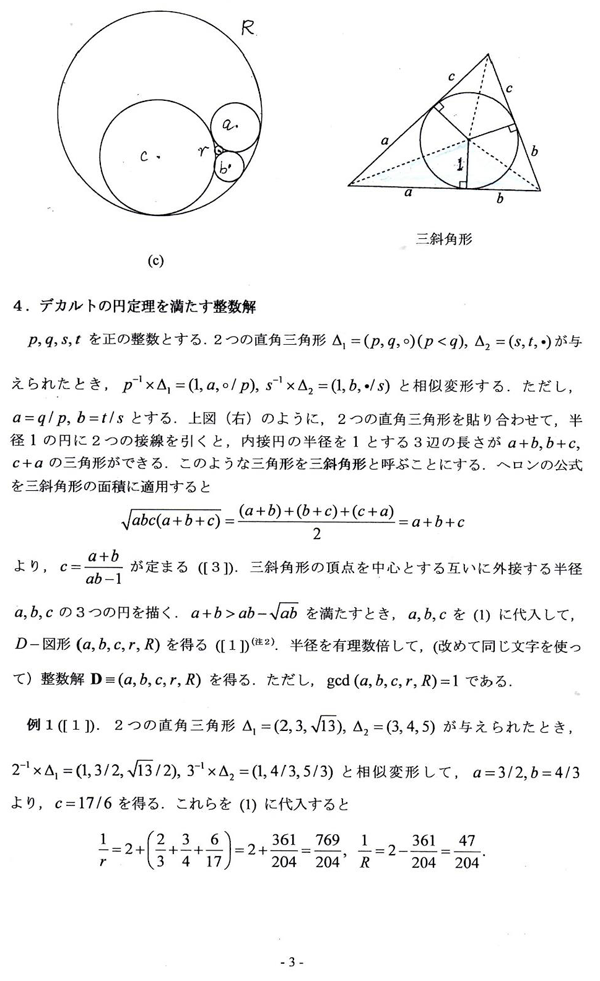 R
a
r
b
c
(c)
c
c
a
b
1
a
b
三斜角形
4．デカルトの円定理を満たす整数解
p, q, s, t を正の整数とする. 2つの直角三角形 Δ₁ = (p, q, ∘)(p < q), Δ₂ = (s, t, •)が与
えられたとき, p⁻¹ × Δ₁ = (1, a, ∘/p), s⁻¹ × Δ₂ = (1, b, •/s) と相似変形する. ただし,
a = q/p, b = t/s とする. 上図（右）のように, 2つの直角三角形を貼り合わせて, 半
径1の円に2つの接線を引くと, 内接円の半径を1とする3辺の長さが a+b, b+c,
c+a の三角形ができる. このような三角形を三斜角形と呼ぶことにする. ヘロンの公式
を三斜角形の面積に適用すると
√abc(a+b+c) = (a+b)+(b+c)+(c+a) / 2 = a+b+c
より, c = a+b / ab−1 が定まる ([3]). 三斜角形の頂点を中心とする互いに外接する半径
a, b, c の3つの円を描く. a+b > ab−√ab を満たすとき, a, b, c を (1) に代入して,
D−図形 (a, b, c, r, R) を得る ([1])⁽注2⁾. 半径を有理数倍して, (改めて同じ文字を使っ
て) 整数解 D ≡ (a, b, c, r, R) を得る. ただし, gcd (a, b, c, r, R) = 1 である.
例1 ([1]). 2つの直角三角形 Δ₁ = (2, 3, √13), Δ₂ = (3, 4, 5) が与えられたとき,
2⁻¹ × Δ₁ = (1, 3/2, √13/2), 3⁻¹ × Δ₂ = (1, 4/3, 5/3) と相似変形して, a = 3/2, b = 4/3
より, c = 17/6 を得る. これらを (1) に代入すると
1/r = 2 + (2/3 + 3/4 + 6/17) = 2 + 361/204 = 769/204, 1/R = 2 − 361/204 = 47/204.
- 3 -